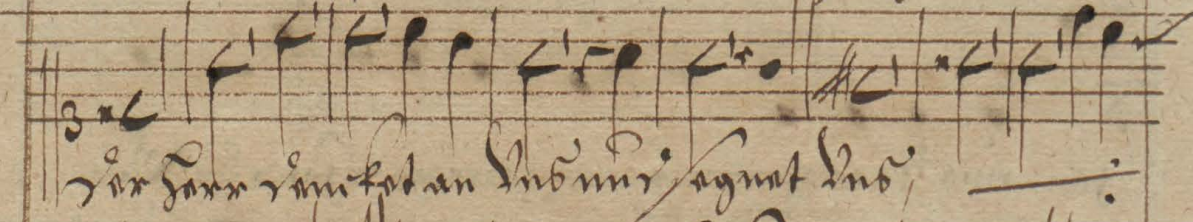 3
Der Herr dencket an Vns und segnet Vns,